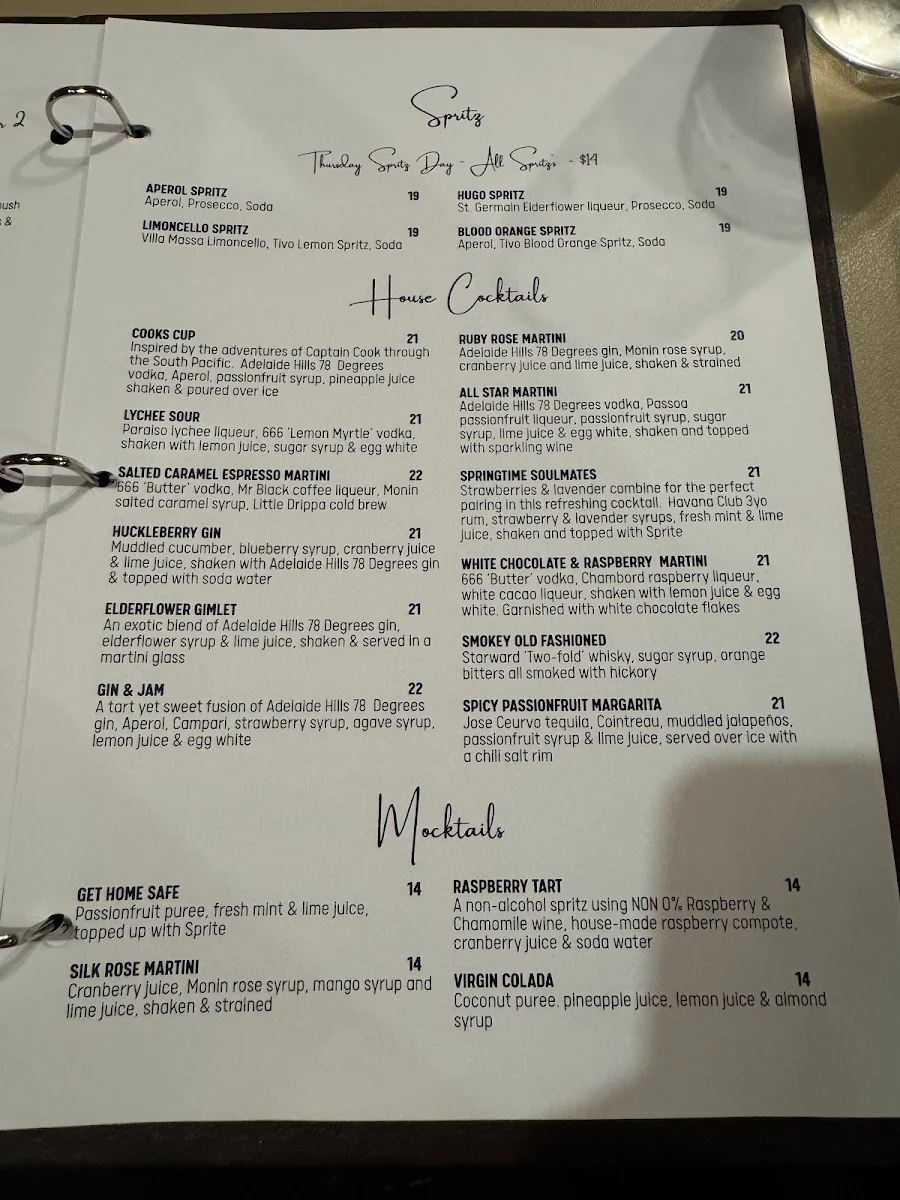 r 2
ush
s &
Spritz
Thursday Spritz Day - All Spritz's - $14
APEROL SPRITZ 19
Aperol, Prosecco, Soda
LIMONCELLO SPRITZ 19
Villa Massa Limoncello, Tivo Lemon Spritz, Soda
HUGO SPRITZ 19
St. Germain Elderflower liqueur, Prosecco, Soda
BLOOD ORANGE SPRITZ 19
Aperol, Tivo Blood Orange Spritz, Soda
House Cocktails
COOKS CUP 21
Inspired by the adventures of Captain Cook through
the South Pacific. Adelaide Hills 78 Degrees
vodka, Aperol, passionfruit syrup, pineapple juice
shaken & poured over ice
LYCHEE SOUR 21
Paraiso lychee liqueur, 666 'Lemon Myrtle' vodka,
shaken with lemon juice, sugar syrup & egg white
SALTED CARAMEL ESPRESSO MARTINI 22
666 'Butter' vodka, Mr Black coffee liqueur, Monin
salted caramel syrup, Little Drippa cold brew
HUCKLEBERRY GIN 21
Muddled cucumber, blueberry syrup, cranberry juice
& lime juice, shaken with Adelaide Hills 78 Degrees gin
& topped with soda water
ELDERFLOWER GIMLET 21
An exotic blend of Adelaide Hills 78 Degrees gin,
elderflower syrup & lime juice, shaken & served in a
martini glass
GIN & JAM 22
A tart yet sweet fusion of Adelaide Hills 78 Degrees
gin, Aperol, Campari, strawberry syrup, agave syrup,
lemon juice & egg white
RUBY ROSE MARTINI 20
Adelaide Hills 78 Degrees gin, Monin rose syrup,
cranberry juice and lime juice, shaken & strained
ALL STAR MARTINI 21
Adelaide Hills 78 Degrees vodka, Passoa
passionfruit liqueur, passionfruit syrup, sugar
syrup, lime juice & egg white, shaken and topped
with sparkling wine
SPRINGTIME SOULMATES 21
Strawberries & lavender combine for the perfect
pairing in this refreshing cocktail. Havana Club 3yo
rum, strawberry & lavender syrups, fresh mint & lime
juice, shaken and topped with Sprite
WHITE CHOCOLATE & RASPBERRY MARTINI 21
666 'Butter' vodka, Chambord raspberry liqueur,
white cacao liqueur, shaken with lemon juice & egg
white. Garnished with white chocolate flakes
SMOKEY OLD FASHIONED 22
Starward 'Two-fold' whisky, sugar syrup, orange
bitters all smoked with hickory
SPICY PASSIONFRUIT MARGARITA 21
Jose Ceurvo tequila, Cointreau, muddled jalapeños,
passionfruit syrup & lime juice, served over ice with
a chili salt rim
Mocktails
GET HOME SAFE 14
Passionfruit puree, fresh mint & lime juice,
topped up with Sprite
SILK ROSE MARTINI 14
Cranberry juice, Monin rose syrup, mango syrup and
lime juice, shaken & strained
RASPBERRY TART 14
A non-alcohol spritz using NON 0% Raspberry &
Chamomile wine, house-made raspberry compote,
cranberry juice & soda water
VIRGIN COLADA 14
Coconut puree, pineapple juice, lemon juice & almond
syrup